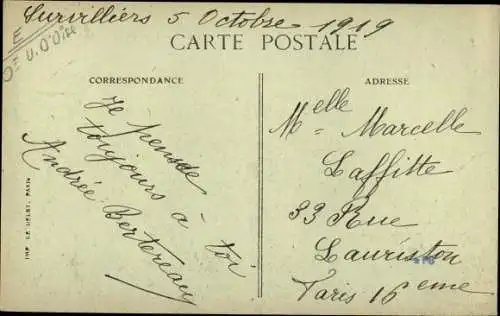 Survilliers 5 Octobre 1919
E
CARTE POSTALE
CORRESPONDANCE
Je pense
toujours à toi
Andrée
ADRESSE
Melle Marcelle
Laffitte
33 Rue
Lauriston
Paris 16eme